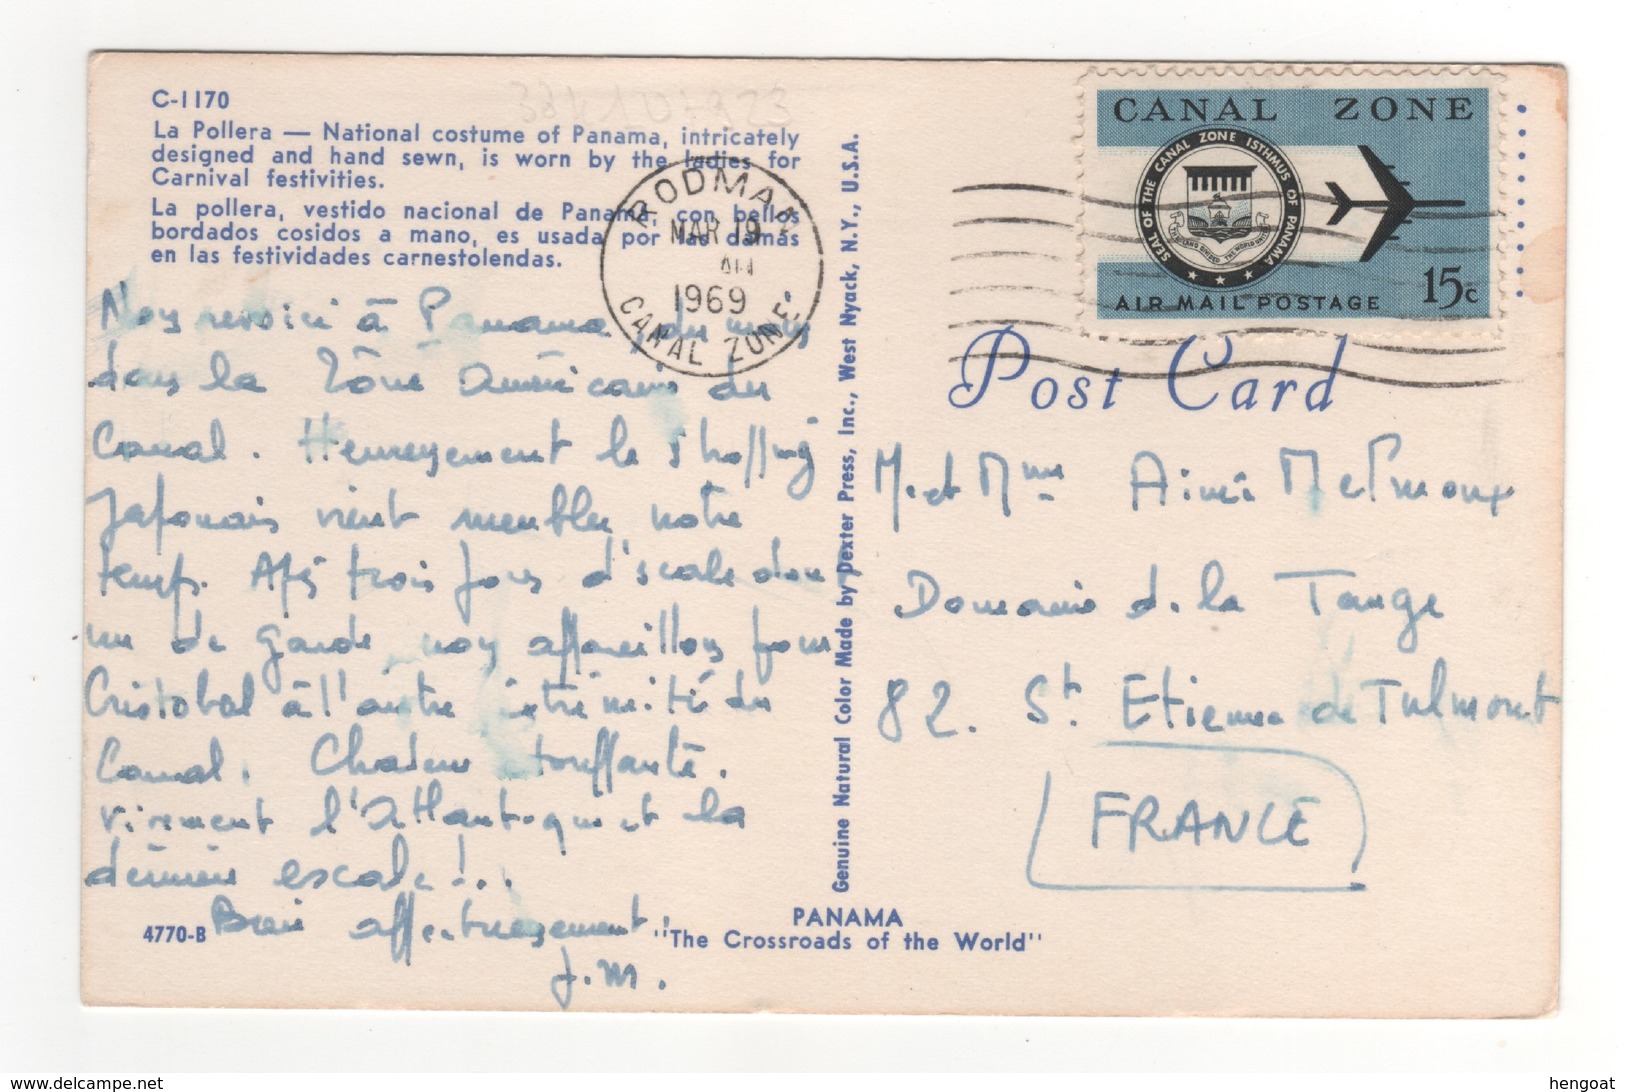 C-1170
La Pollera — National costume of Panama, intricately
designed and hand sewn, is worn by the ladies for
Carnival festivities.
La pollera, vestido nacional de Panama, con bellos
bordados cosidos a mano, es usada por las damas
en las festividades carnestolendas.
Nous revoici à Panama, du moins
dans la Zône américaine du
Canal. Heureusement le shopping
Japonais vient meubler notre
temps. Après trois jours d'escale dont
un de garde nous appareillons pour
Cristobal à l'autre extrémité du
Canal. Chaleur étouffante.
Vivement l'Atlantique et la
dernière escale!..
affectueusement.
J.M.
4770-B
PANAMA
"The Crossroads of the World"
Genuine Natural Color Made by Dexter Press, Inc., West Nyack, N.Y., U.S.A.
RODMAN
MAR 19
AM
1969
CANAL ZONE
CANAL ZONE
SEAL OF THE CANAL ZONE ISTHMUS OF PANAMA
THE LAND DIVIDED THE WORLD UNITED
AIR MAIL POSTAGE 15c
Post Card
M. et Mme Aimé
Domaine de la Tauge
82. St Etienne de Tulmont
FRANCE
hengoat